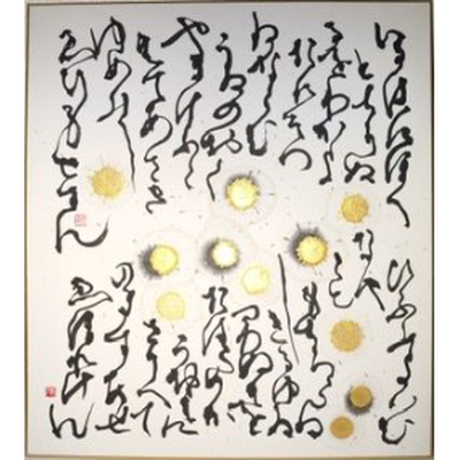 いろはにほへ
とちりぬ
るをわかよ
たれそつ
ねならむ
うゐのおく
やまけふこ
えてあさき
ゆめみし
ゑひもせすん
ひふみよいむ
なや
こと
もちろらね
し
きるゆゐ
つわぬそを
たはくめか
うおえに
さりへて
のますあせ
ゑほれけん